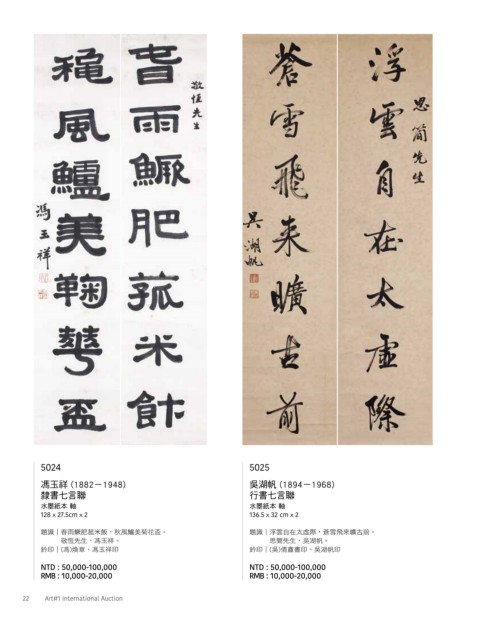 敬恒先生
旾雨鱖肥菰米飰
穐風鱸美鞠華盃
馮玉祥
思簡先生
浮雲自在太虛際
蒼雪飛来曠古前
吳湖帆
5024
馮玉祥 (1882－1948)
隸書七言聯
水墨紙本 軸
128 x 27.5cm x 2
題識｜春雨鱖肥菰米飯，秋風鱸美菊花盃。
敬恆先生，馮玉祥。
鈐印｜(馮)煥章、馮玉祥印
NTD : 50,000-100,000
RMB : 10,000-20,000
5025
吳湖帆 (1894－1968)
行書七言聯
水墨紙本 軸
136.5 x 32 cm x 2
題識｜浮雲自在太虛際，蒼雪飛來曠古前。
思簡先生，吳湖帆。
鈐印｜(吳)倩盦書印、吳湖帆印
NTD : 50,000-100,000
RMB : 10,000-20,000
22 Art#1 International Auction